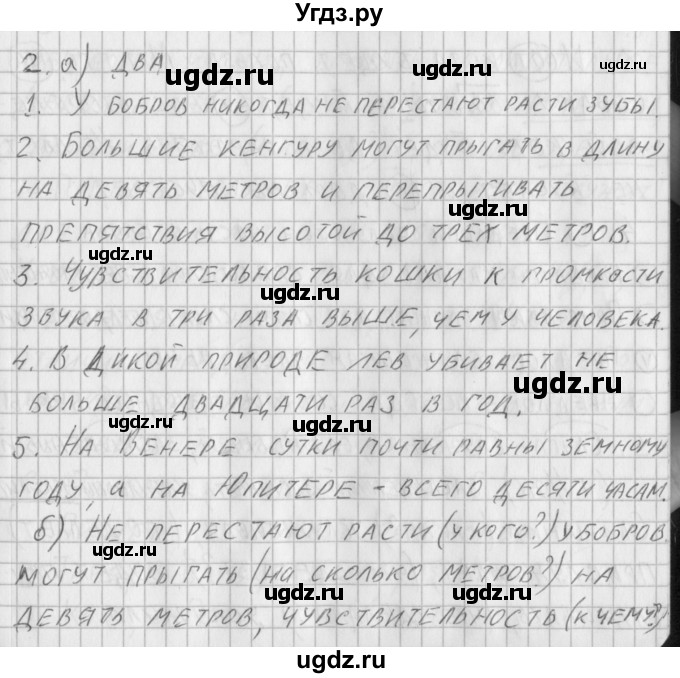 Угдз.ру
2. а) ДВА
ugdz.ru
ugdz.ru
1. У БОБРОВ НИКОГДА НЕ ПЕРЕСТАЮТ РАСТИ ЗУБЫ.
ugdz.ru
2. БОЛЬШИЕ КЕНГУРУ МОГУТ ПРЫГАТЬ В ДЛИНУ
НА ДЕВЯТЬ МЕТРОВ И ПЕРЕПРЫГИВАТЬ
ugdz.ru
ПРЕПЯТСТВИЯ ВЫСОТОЙ ДО ТРЕХ МЕТРОВ.
ugdz.ru
3. ЧУВСТВИТЕЛЬНОСТЬ КОШКИ К ГРОМКОСТИ
ugdz.ru
ЗВУКА В ТРИ РАЗА ВЫШЕ, ЧЕМ У ЧЕЛОВЕКА.
ugdz.ru
4. В ДИКОЙ ПРИРОДЕ ЛЕВ УБИВАЕТ НЕ
ugdz.ru
БОЛЬШЕ ДВАДЦАТИ РАЗ В ГОД.
ugdz.ru
5. НА ВЕНЕРЕ СУТКИ ПОЧТИ РАВНЫ ЗЕМНОМУ
ГОДУ, а НА ЮПИТЕРЕ - ВСЕГО ДЕСЯТИ ЧАСАМ.
ugdz.ru
б) НЕ ПЕРЕСТАЮТ РАСТИ (У КОГО?) У БОБРОВ,
ugdz.ru
МОГУТ ПРЫГАТЬ (НА СКОЛЬКО МЕТРОВ?) НА
ugdz.ru
ДЕВЯТЬ МЕТРОВ, ЧУВСТВИТЕЛЬНОСТЬ (К ЧЕМУ?)
ugdz.ru
ugdz.ru
ugdz.ru